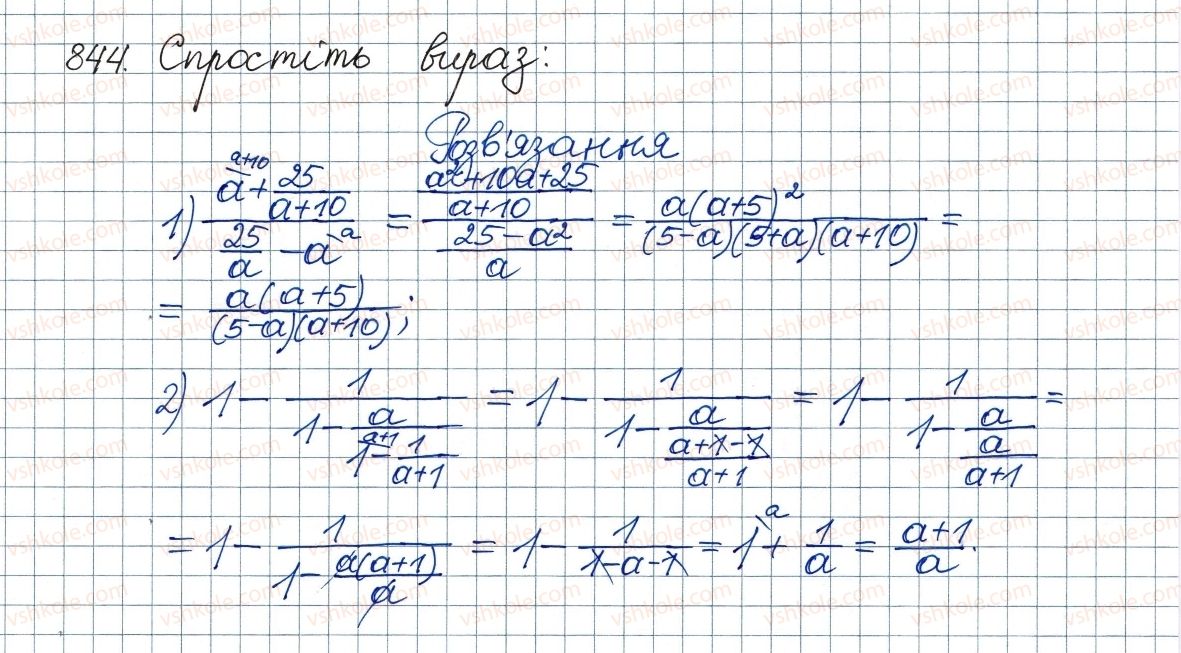 844. Спростіть вираз:
Розв'язання
1) (a^(a+10) + 25/(a+10)) / (25/a - a^(a)) = ((a²+10a+25)/(a+10)) / ((25-a²)/a) = a(a+5)²/((5-a)(5+a)(a+10)) =
= a(a+5)/((5-a)(a+10));
2) 1 - 1/(1 - a/(1^(a+1) - 1/(a+1))) = 1 - 1/(1 - a/((a+1-1)/(a+1))) = 1 - 1/(1 - a/(a/(a+1))) =
= 1 - 1/(1 - a(a+1)/a) = 1 - 1/(1-a-1) = 1^(a) + 1/a = (a+1)/a.
vshkole.com